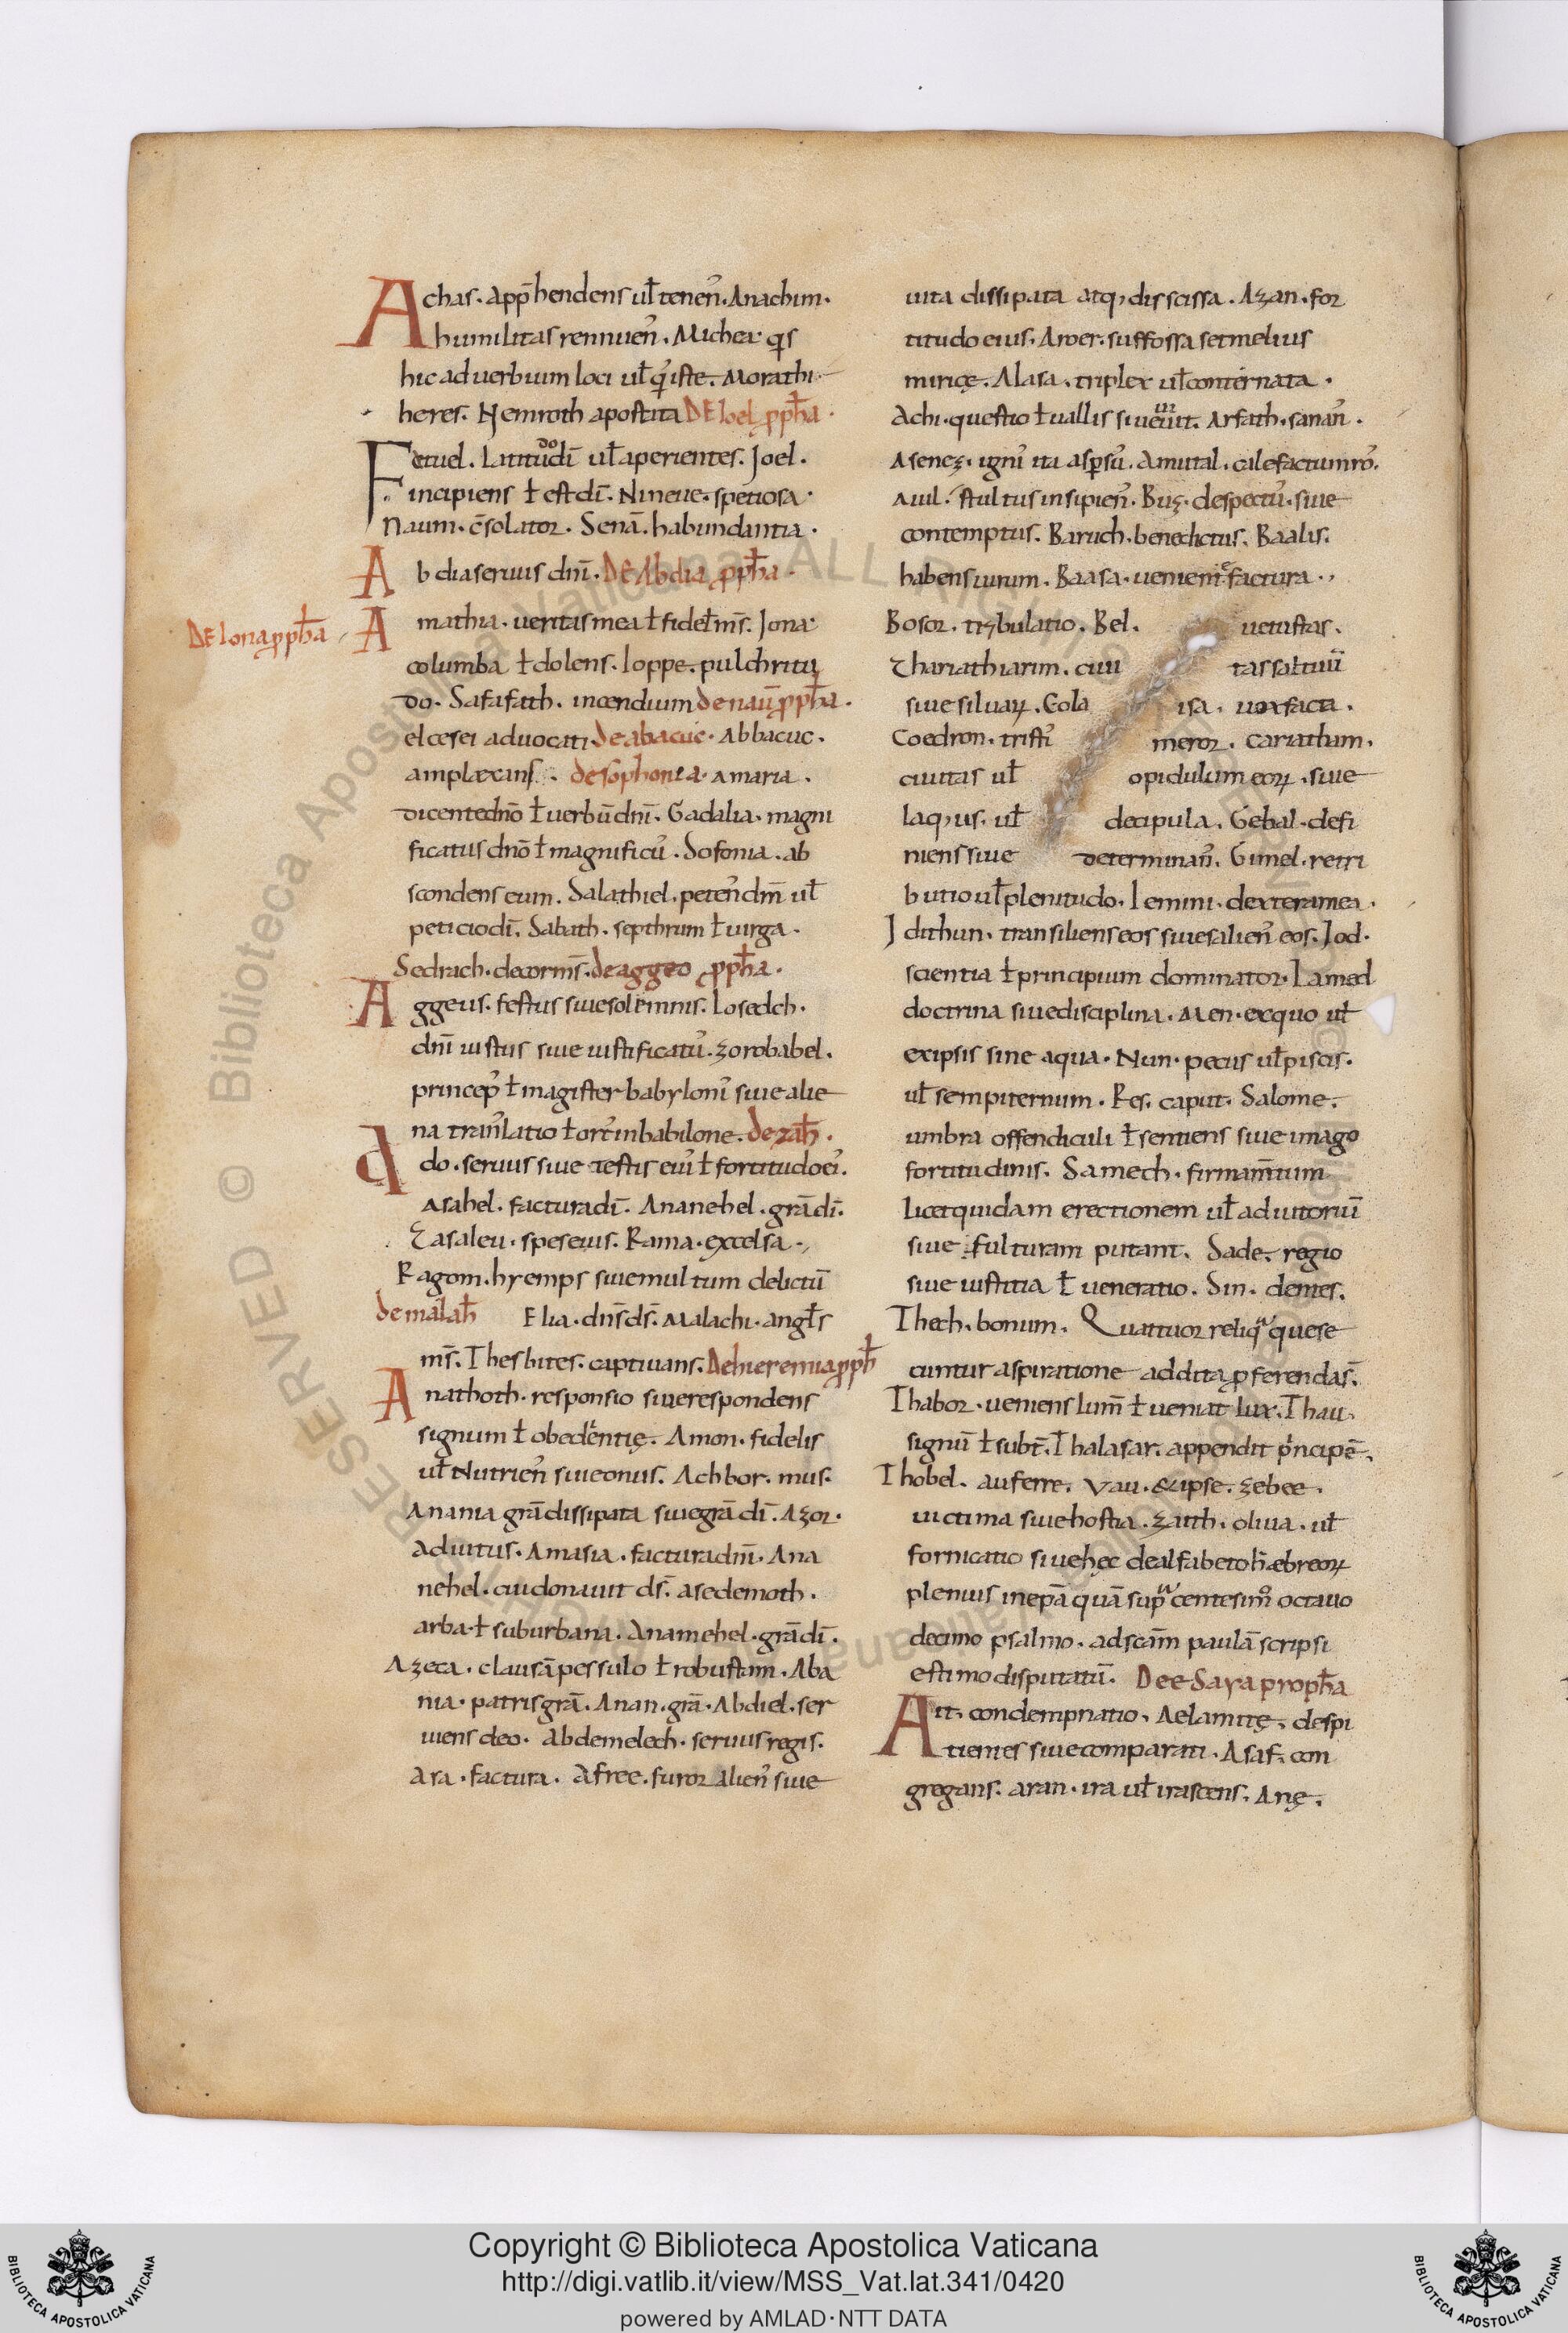 Achas. app̄hendens ul̄ tenen̄. Anachim.
humilitas rennuen̄. Michea. q̄s
hic ad uerbium loci ul̄ q̄ iste. Morathi.
heres. Nemroth apostita DE Ioel p̱ph̄a.
Fetuel. Latitudo dī ul̄ aperientes. Joel.
incipiens ł est dī. Nineue. spetiosa.
Naum. c̄solator. Senā. habundantia.
Abdia seruus dnī. DE Abdia p̱ph̄a.
DE Iona p̱ph̄a
Amathia. ueritas mea ł fidel̄ ms̄. Jona.
columba ł dolens. Ioppe. pulchritu
do. Safafath. incendium de naū p̱ph̄a.
elcesei aduocati. De abacuc. Abbacuc.
amplexans. de sophonia. amaria.
dicente dnō ł uerbū dnī. Gadalia. magni
ficatus dnō ł magnificū. Sofonia. ab
scondens eum. Salathiel. peten̄ dm̄ ul̄
peticio dī. Sabath. septhrum ł uirga.
Sedrach. decor ms̄. de aggeo p̱ph̄a.
Aggeus. festus siue solemnis. Iosedch.
dnī iustus siue iustificatu᾽. zorobabel.
princep᾽ ł magister babyloni᾽ siue alie
na tran᾽latio ł ort᾽ in babilone. de zah̄.
Ado. seruus siue testis eiu᾽ ł fortitudo ei᾽.
Asahel. factura dī. Ananehel. grā dī.
Casaleu. spes eius. Rama. excelsa.
Ragom. hyemps siue multum delictū
de malah̄ Elia. dns̄ ds̄. Malachi. angl̄s
ms̄. Thesbites. captiuans. De hieremia p̱ph̄
Anathoth. responsio siue respondens
signum ł obedientię. Amon. fidelis
ul̄ Nutrien̄ siue onus. Achbor. mus.
Anania grā dissipata siue grā dī. Azor.
adiutus. Amasia. factura dm̄. Ana
nehel. cui donauit ds̄. asedemoth.
arba. ł suburbana. Anamehel. grā dī.
Azeca. clausā pessulo ł robustam. Aba
nia. patris grā. Anan. grā. Abdiel. ser
uiens deo. abdemelech. seruus regis.
Asa. factura. Afree. furor alien᾽ siue
uita dissipata atq, discissa. Azan. for
titudo eius. Aroer. suffossa set melius
miricę. Alasa. triplex ul̄ conternata.
Achi. questio ł uallis siue uiuit. Arfath. sanan᾽.
Asenez. igni᾽ ita asp̱su᾽. Amutal. calefactum ro᾽.
Auil. stultus insipien᾽. Buz. despectu᾽. siue
contemptus. Baruch. benedictus. Baalis.
habens uirum. Baasa. ueniens factura.
Bosor. tribulatio. Bel. uetustas.
Chariathiarim. ciui tas saltuū
siue siluaꝝ. Cola isa. uox facta.
Coedron. tristi᾽ meror. cariathum.
ciuitas ul̄ opidulum eoꝝ. siue
laq,us. ul̄ decipula. Gebal. defi
niens siue determinan᾽. Gimel. retri
butio ul̄ plenitudo. Iemini. dextera mea.
Idithun. transiliens eos siue salien᾽ eos. Jod.
scientia ł principium dominator. Lamed
doctrina siue disciplina. Men. ex quo ul̄
ex ipsis sine aqua. Nun. pecus ul̄ piscis.
ul̄ sempiternum. Res. caput. Salome.
umbra offendiculi ł sentiens siue imago
fortitudinis. Samech. firmam̄tum
licet quidam erectionem ul̄ adiutoriū
siue fulturam putant. Sade. regio
siue iustitia ł ueneratio. Sin. dentes.
Thech. bonum. Quattuor reliqua que se
cuntur aspiratione addita p̱ferendas̄.
Thabor. ueniens lum̄ ł ueniat lux. Thau.
signū ł subt̄. Thalasar. appendit principē.
Thobel. auferre. Vau. & ipse. zebee.
uictima siue hostia. zaith. oliua. ul̄
fornicatio siue hęc de alfabeto h̄ebreoꝝ
plenius in epā quā sup̱ centesimo᾽ octauo
decimo psalmo. ad scām paulā scripsi
estimo disputatū. De eSaya proph̄a
Ait. condempnatio. Aelamitę. despi
tientes siue comparati. Asaf. con
gregans. aran. ira ul̄ irascens. Anę.
Copyright © Biblioteca Apostolica Vaticana
http://digi.vatlib.it/view/MSS_Vat.lat.341/0420
powered by AMLAD·NTT DATA